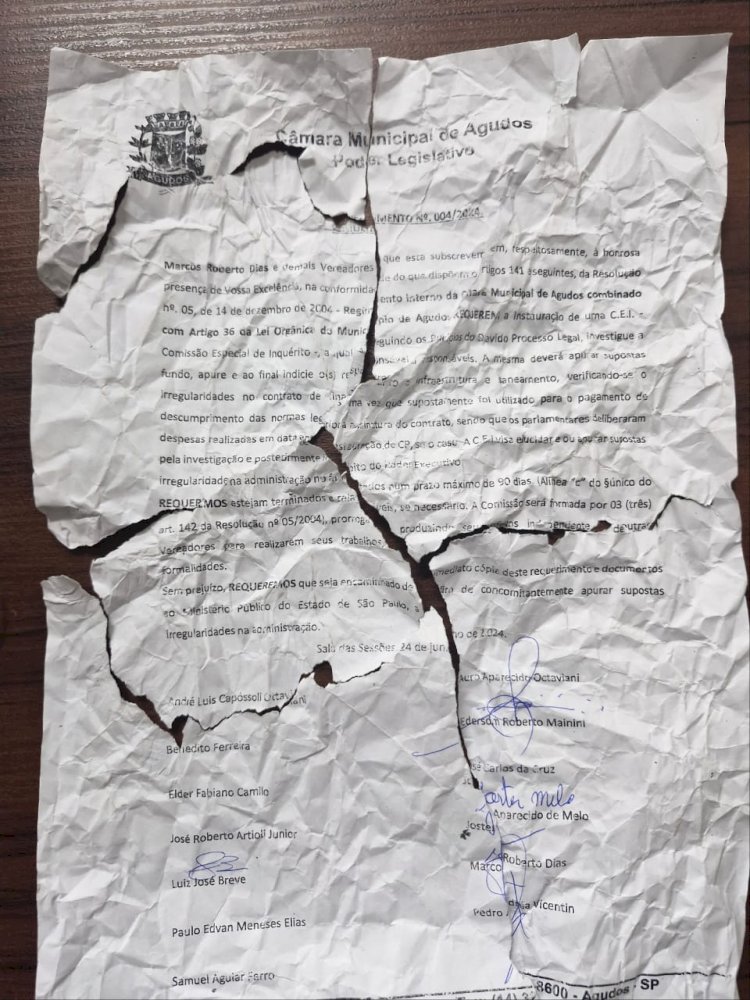 AGUDOS
Câmara Municipal de Agudos
Poder Legislativo
MENTO Nº. 004/2024
Marcos Roberto Dias e demais Vereadores que esta subscrevem, respeitosamente, à honrosa
presença de Vossa Excelência, na conformida de do que dispõem o rtigos 141 e seguintes, da Resolução
nº. 05, de 14 de dezembro de 2004 - Regi ento Interno da Municipal de Agudos combinado
com Artigo 36 da Lei Orgânica do Munic pio de Agudos REQUEREM a Instauração de uma C.E.I. -
Comissão Especial de Inquérito -, a qual guindo os do Devido Processo Legal, investigue a
fundo, apure e ao final indicie o(s) res onsáveis. A mesma deverá apurar supostas
irregularidades no contrato de infraestrutura e saneamento, verificando-se o
descumprimento das normas le ma vez que supostamente foi utilizado para o pagamento de
despesas realizadas em data assinatura do contrato, sendo que os parlamentares deliberaram
pela investigação e posteriormente instauração de CP, se o caso. A C.E.I visa elucidar e ou apurar supostas
irregularidade na administração no bito do Poder Executivo.
REQUERMOS estejam terminados e num prazo máximo de 90 dias (Alínea "c" do §único do
art. 142 da Resolução nº 05/2004), prorrog se necessário. A Comissão será formada por 03 (três)
Vereadores para realizarem seus trabalhos, produzindo
formalidades.
Sem prejuízo, REQUEREMOS que seja encaminhado de imediato cópia deste requerimento e documentos
ao Ministério Público do Estado de São Paulo, a de concomitantemente apurar supostas
irregularidades na administração.
Sala das Sessões 24 de jun ho de 2024.
André Luis Capossoli Octaviani
Aparecido Octaviani
Benedito Ferreira
Ederson Roberto Mainini
Elder Fabiano Camilo
Carlos da Cruz
José Roberto Artioli Junior
Aparecido de Melo
Luiz José Breve
Marco Roberto Dias
Paulo Edvan Meneses Elias
Pedro Vicentin
Samuel Aguiar Ferro
8600 - Agudos - SP